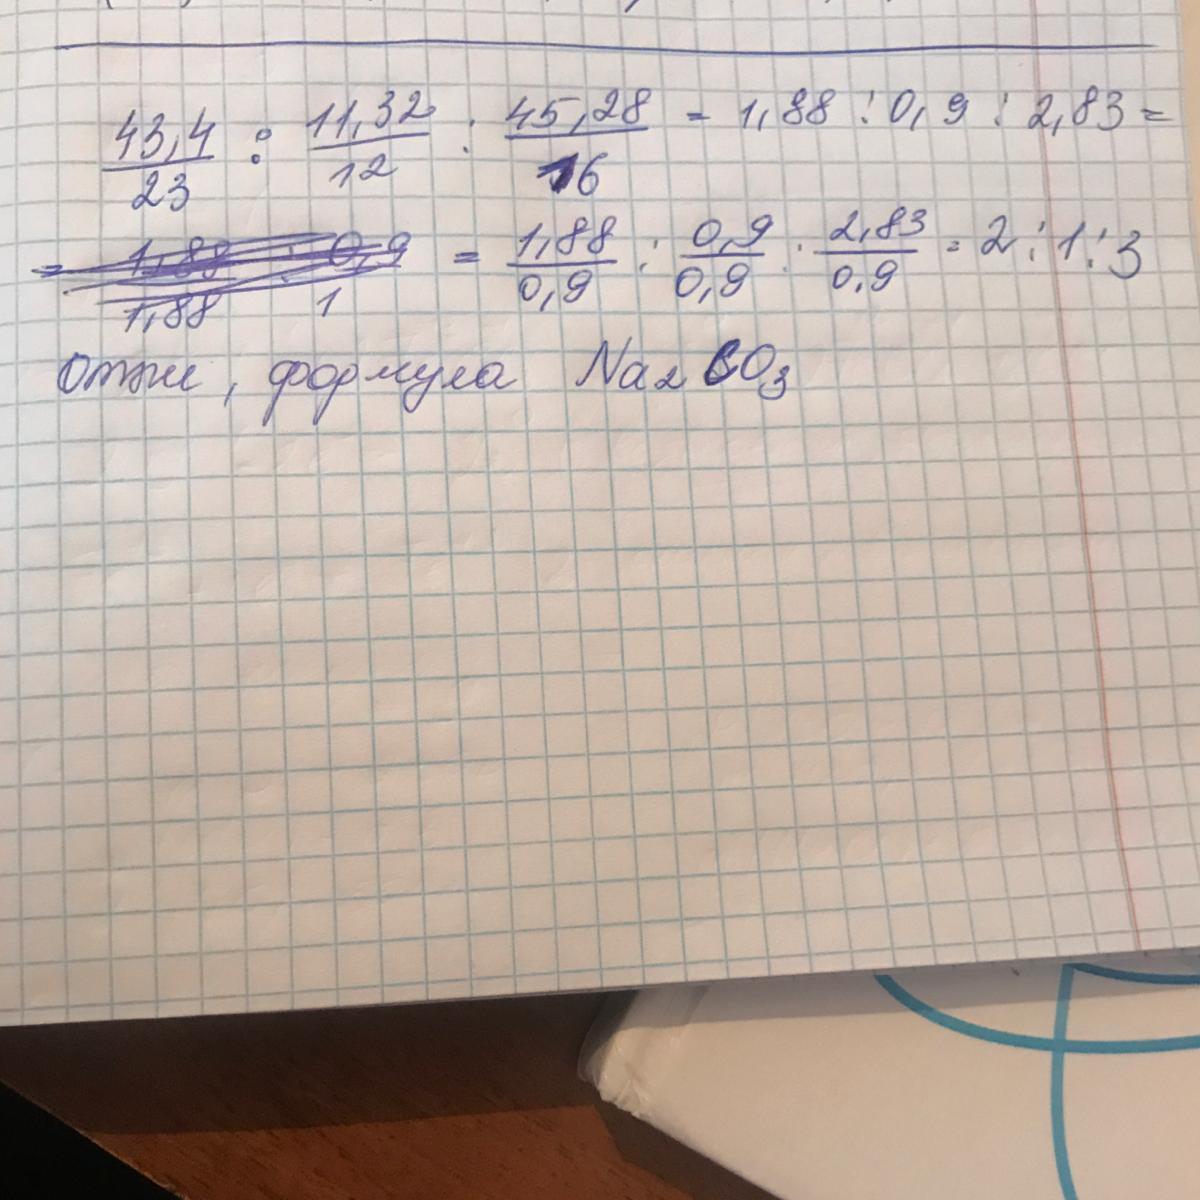 43,4/23 : 11,32/12 : 45,28/16 = 1,88 : 0,9 : 2,83 =
= 1,88/0,9 : 0,9/0,9 : 2,83/0,9 = 2 : 1 : 3
Отже, формула Na₂CO₃